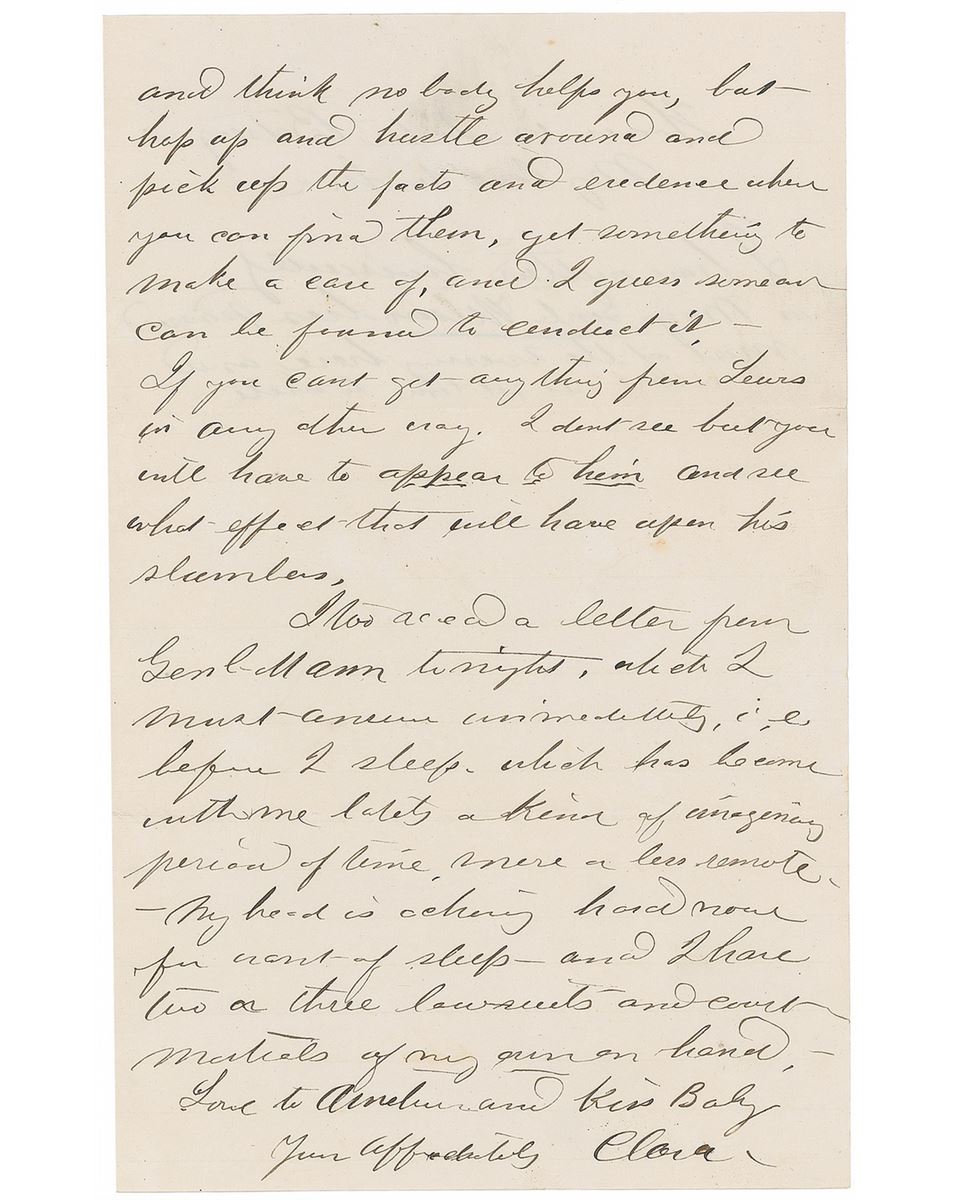 and think nobody helps you, but
hop up and hustle around and
pick up the facts and evedence where
you can find them, get something to
make a case of, and I guess someone
can be found to conduct it –
If you cant get anything from Lewis
in any other way. I dont see but you
will have to appear to him and see
what effect that will have upon his
slumbers,
I too recd a letter from
Genl Mann tonight, which I
must answer immediately, i,e
before I sleep. which has become
with me lately a kind of imaginary
period of time, more or less remote –
– My head is acheing hard now
for want of sleep – and I have
two or three lawsuits and court
martials of my own on hand, –
Love to and Kiss Baby
Your affectately Clara –